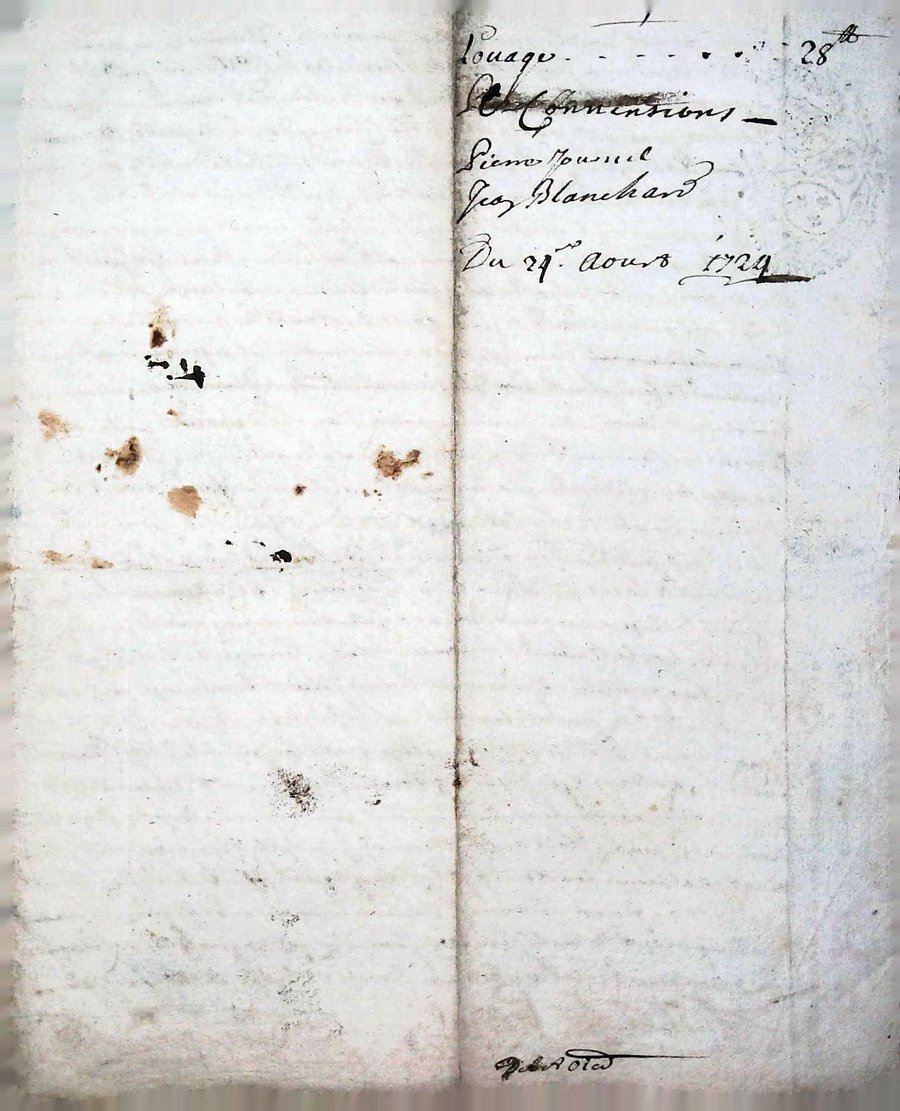 Louage - - - - - - - 28 ₶
Et Connensions
Pierre Journel
Jean Blanchard
Du 24me Aoust 1724